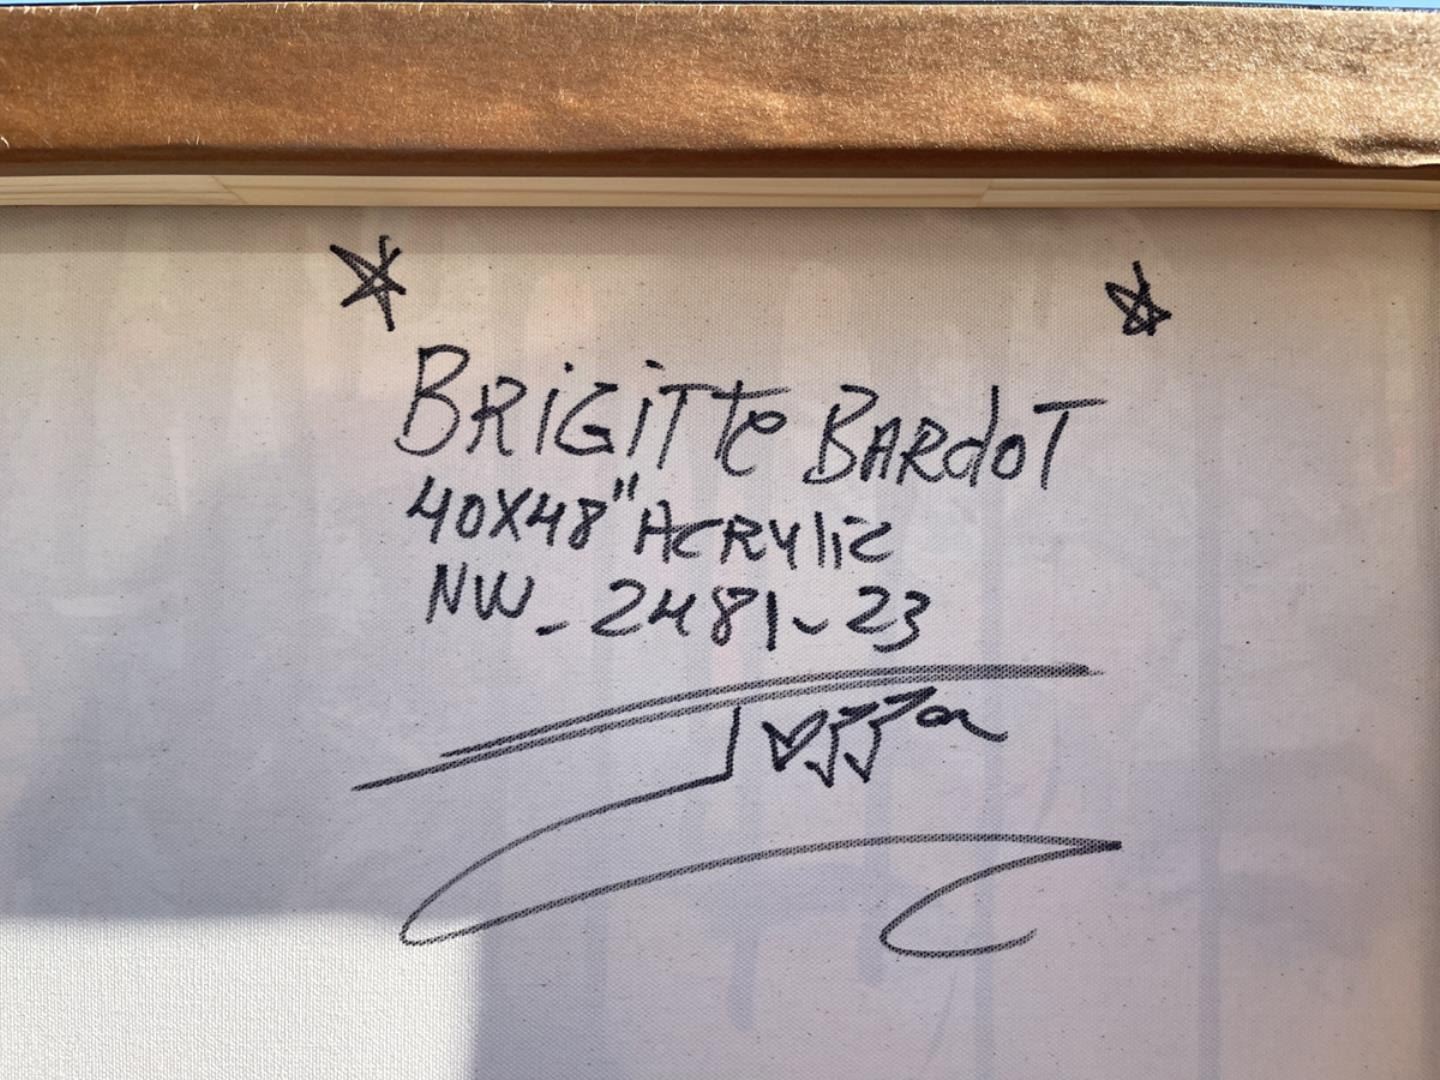 BRiGiTTe BARdoT
40X48" ACRYlic
NW_2481-23